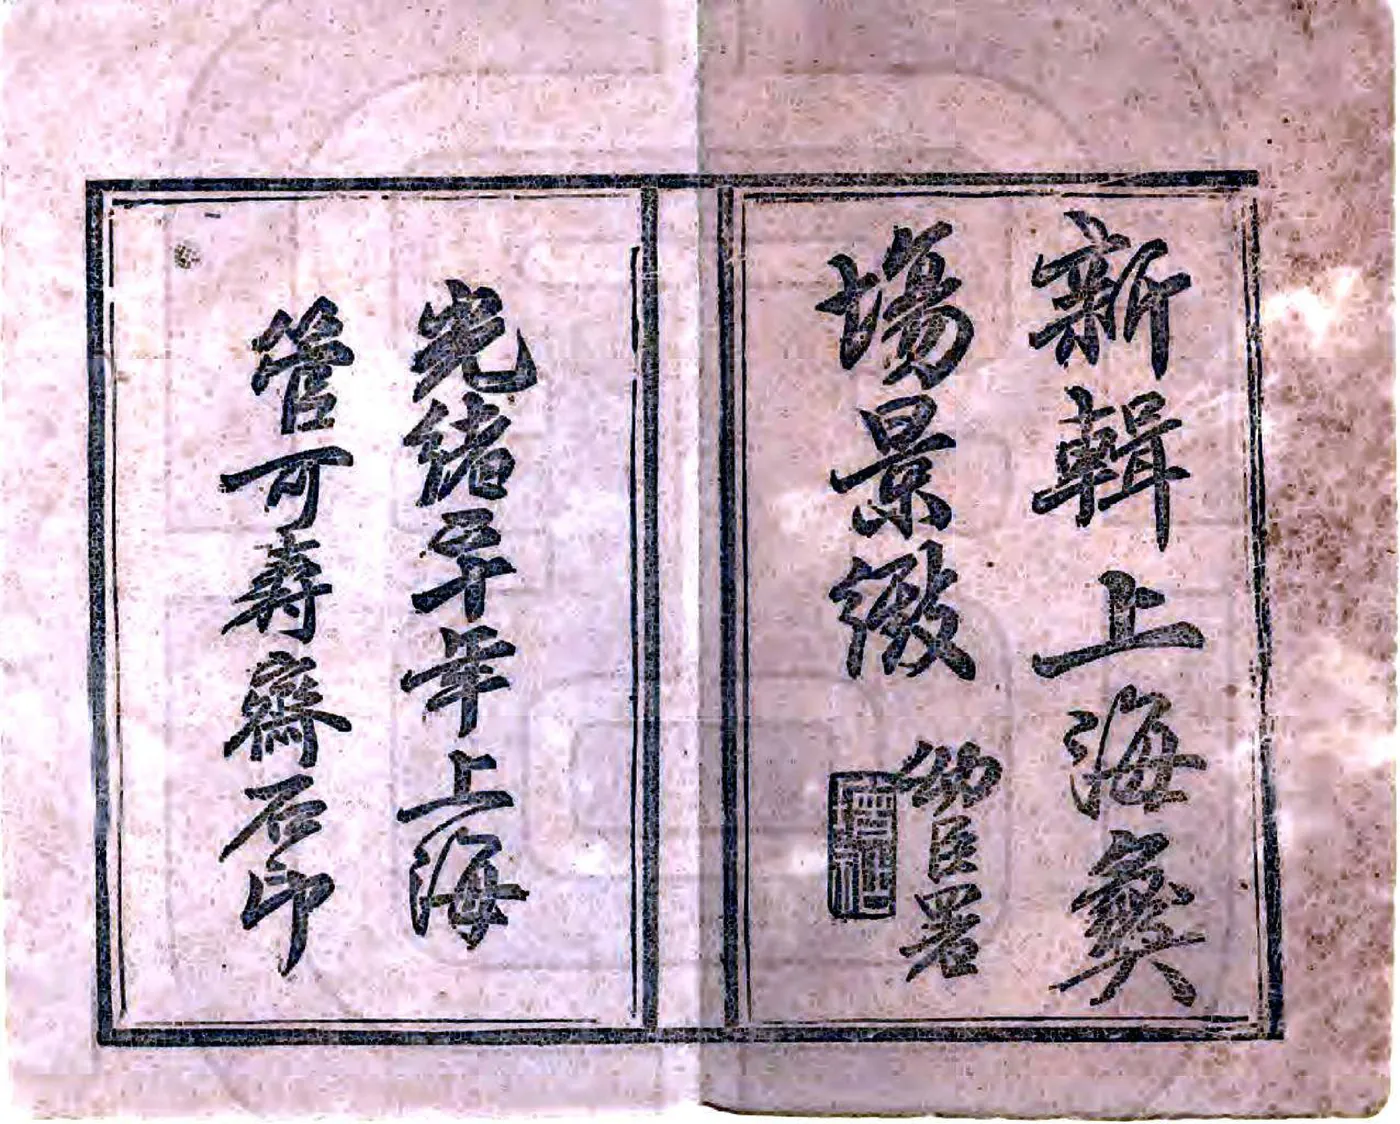 新輯上海彝
場景緻
幼臣署
光緒二十年上海
管可壽齋石印